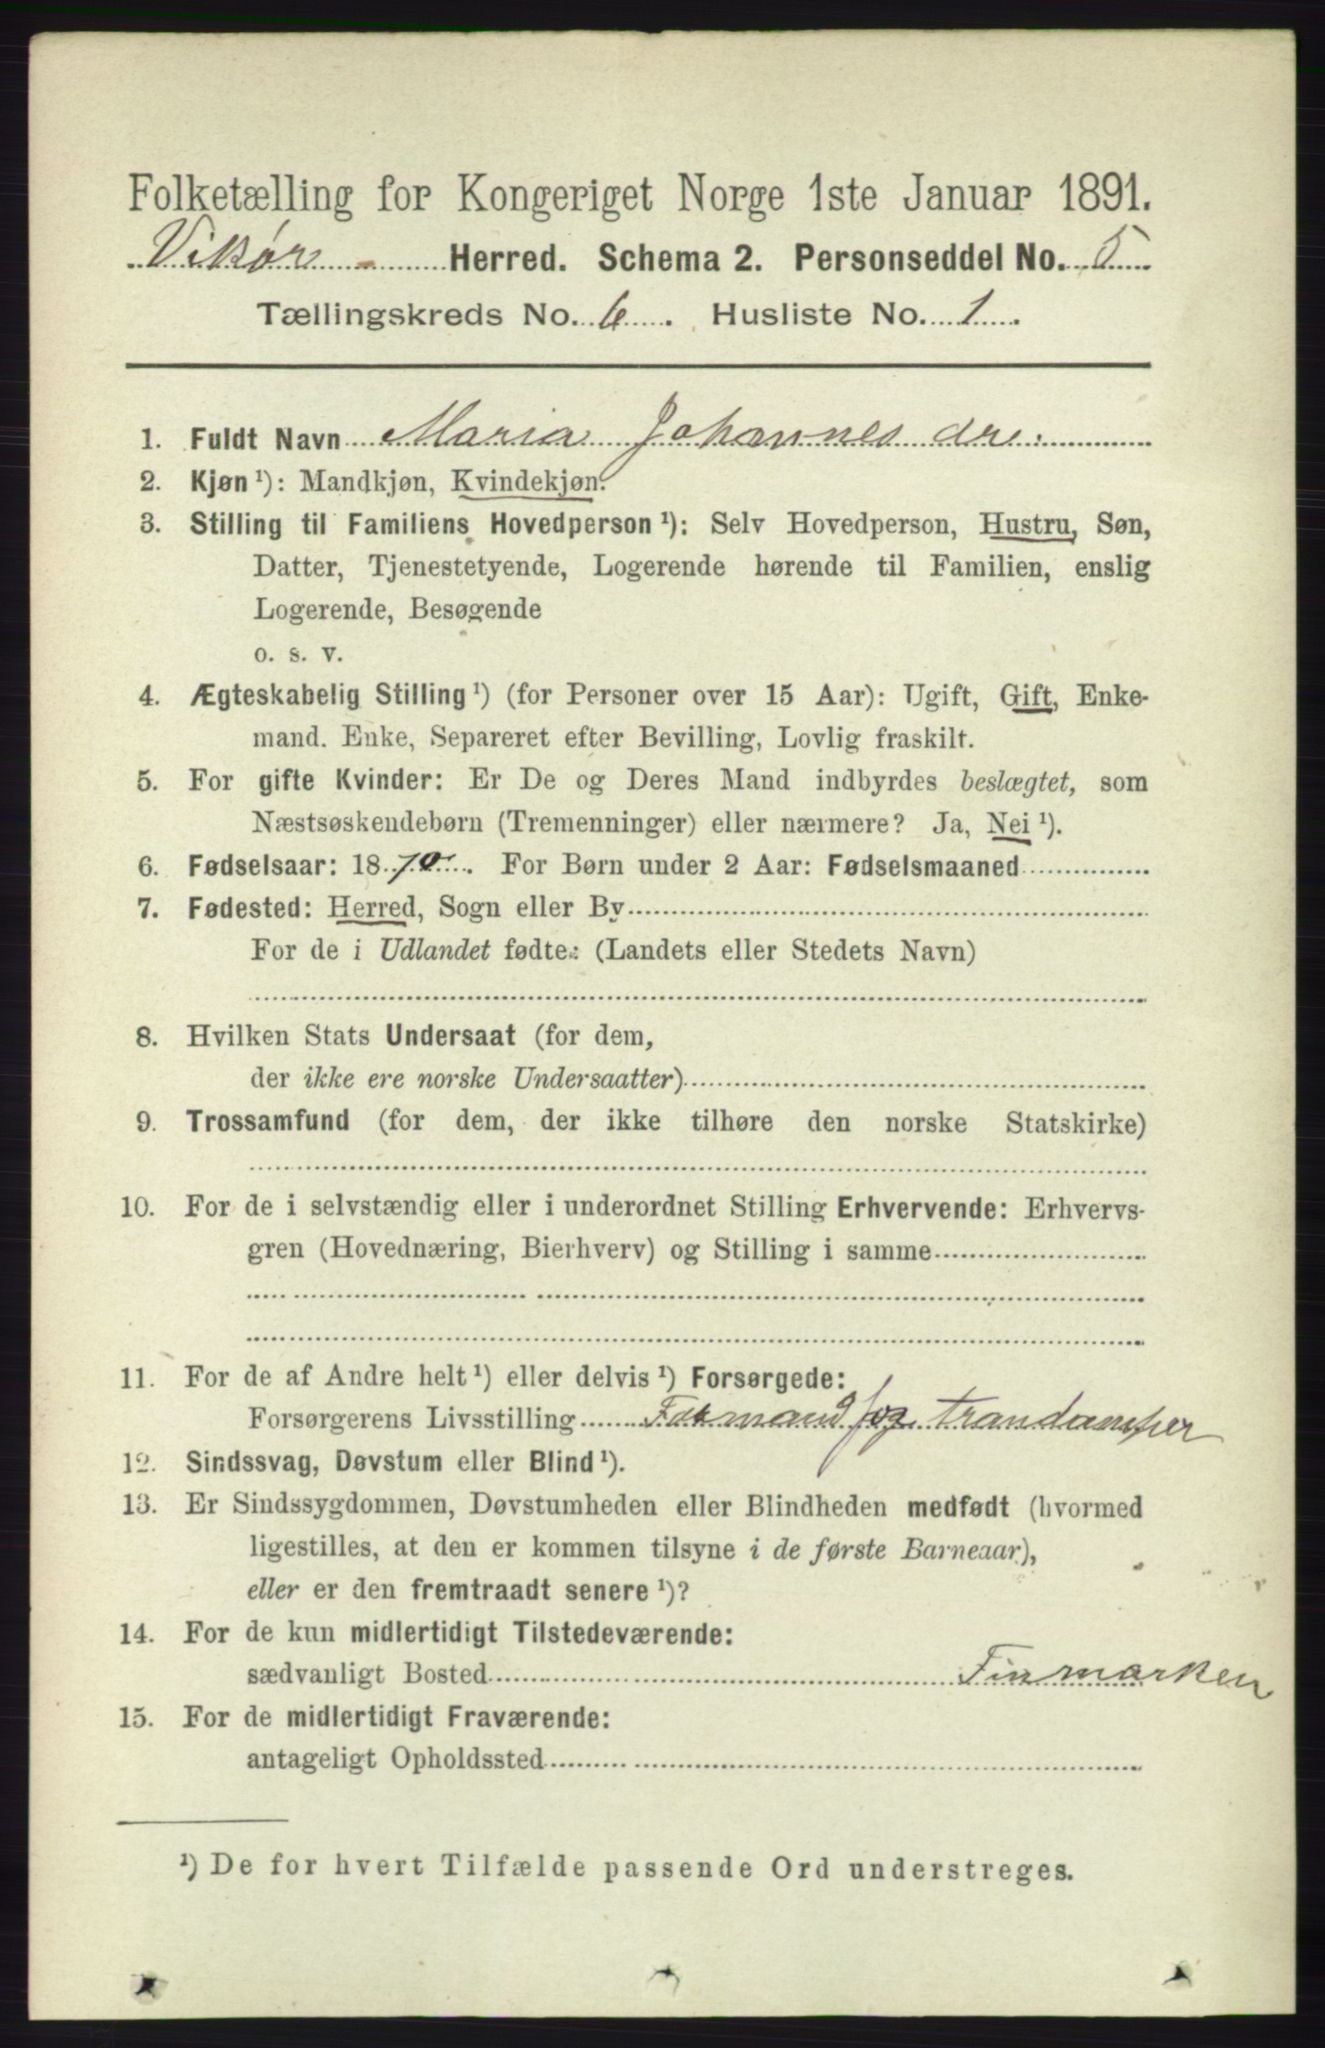 Folketælling for Kongeriget Norge 1ste Januar 1891.
Vikør Herred. Schema 2. Personseddel No. 5
Tællingskreds No. 6. Husliste No. 1.
1. Fuldt Navn Maria Johannes dr.
2. Kjøn ¹): Mandkjøn, Kvindekjøn.
3. Stilling til Familiens Hovedperson ¹): Selv Hovedperson, Hustru, Søn,
Datter, Tjenestetyende, Logerende hørende til Familien, enslig
Logerende, Besøgende
o. s. v.
4. Ægteskabelig Stilling ¹) (for Personer over 15 Aar): Ugift, Gift, Enke-
mand. Enke, Separeret efter Bevilling, Lovlig fraskilt.
5. For gifte Kvinder: Er De og Deres Mand indbyrdes beslægtet, som
Næstsøskendebørn (Tremenninger) eller nærmere? Ja, Nei ¹).
6. Fødselsaar: 1870. For Børn under 2 Aar: Fødselsmaaned
7. Fødested: Herred, Sogn eller By
For de i Udlandet fødte: (Landets eller Stedets Navn)
8. Hvilken Stats Undersaat (for dem,
der ikke ere norske Undersaatter)
9. Trossamfund (for dem, der ikke tilhøre den norske Statskirke)
10. For de i selvstændig eller i underordnet Stilling Erhvervende: Erhvervs-
gren (Hovednæring, Bierhverv) og Stilling i samme
11. For de af Andre helt ¹) eller delvis ¹) Forsørgede:
Forsørgerens Livsstilling Formand og trandamper
12. Sindssvag, Døvstum eller Blind ¹).
13. Er Sindssygdommen, Døvstumheden eller Blindheden medfødt (hvormed
ligestilles, at den er kommen tilsyne i de første Barneaar),
eller er den fremtraadt senere ¹)?
14. For de kun midlertidigt Tilstedeværende:
sædvanligt Bosted Finmarken
15. For de midlertidigt Fraværende:
antageligt Opholdssted
¹) De for hvert Tilfælde passende Ord understreges.